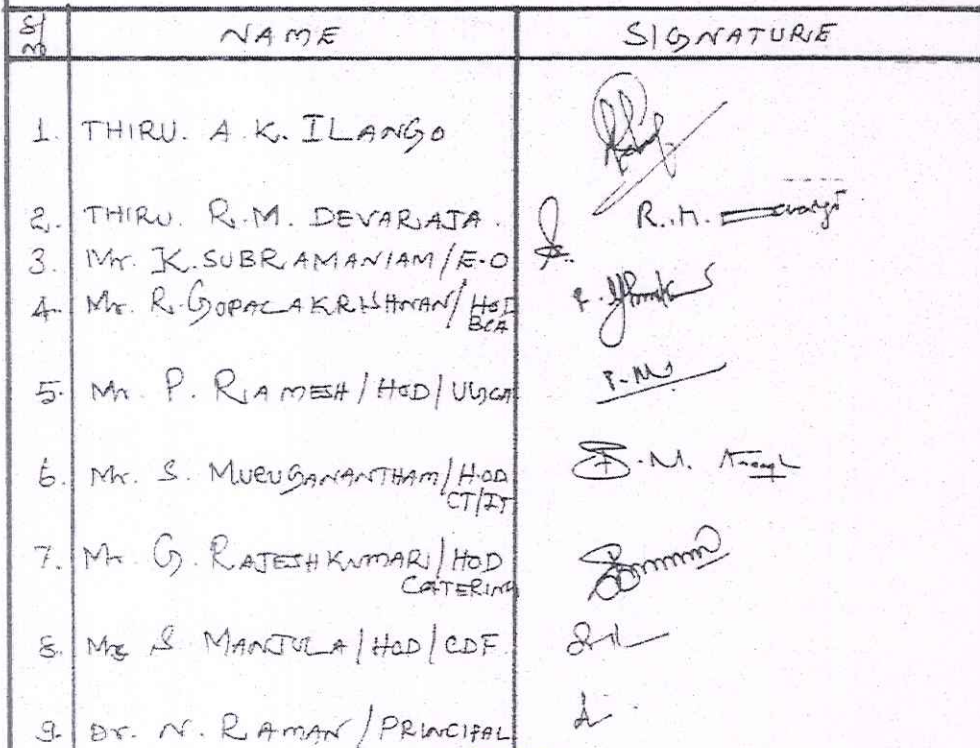 S/No NAME SIGNATURE
1. THIRU. A. K. ILANGO
2. THIRU. R.M. DEVARAJA. R.M.
3. Mr. K. SUBRAMANIAM/E.O
4. Mr. R. GOPALAKRISHNAN/HOD
BCA
5. Mr. P. RAMESH/HOD/
6. Mr. S. MURUGANANTHAM/HOD
CT/IT
7. Mr. G. RAJESHKUMAR/HOD
CATERING
8. Ms S. MANJULA/HOD/CDF
9. Dr. N. RAMAN/PRINCIPAL